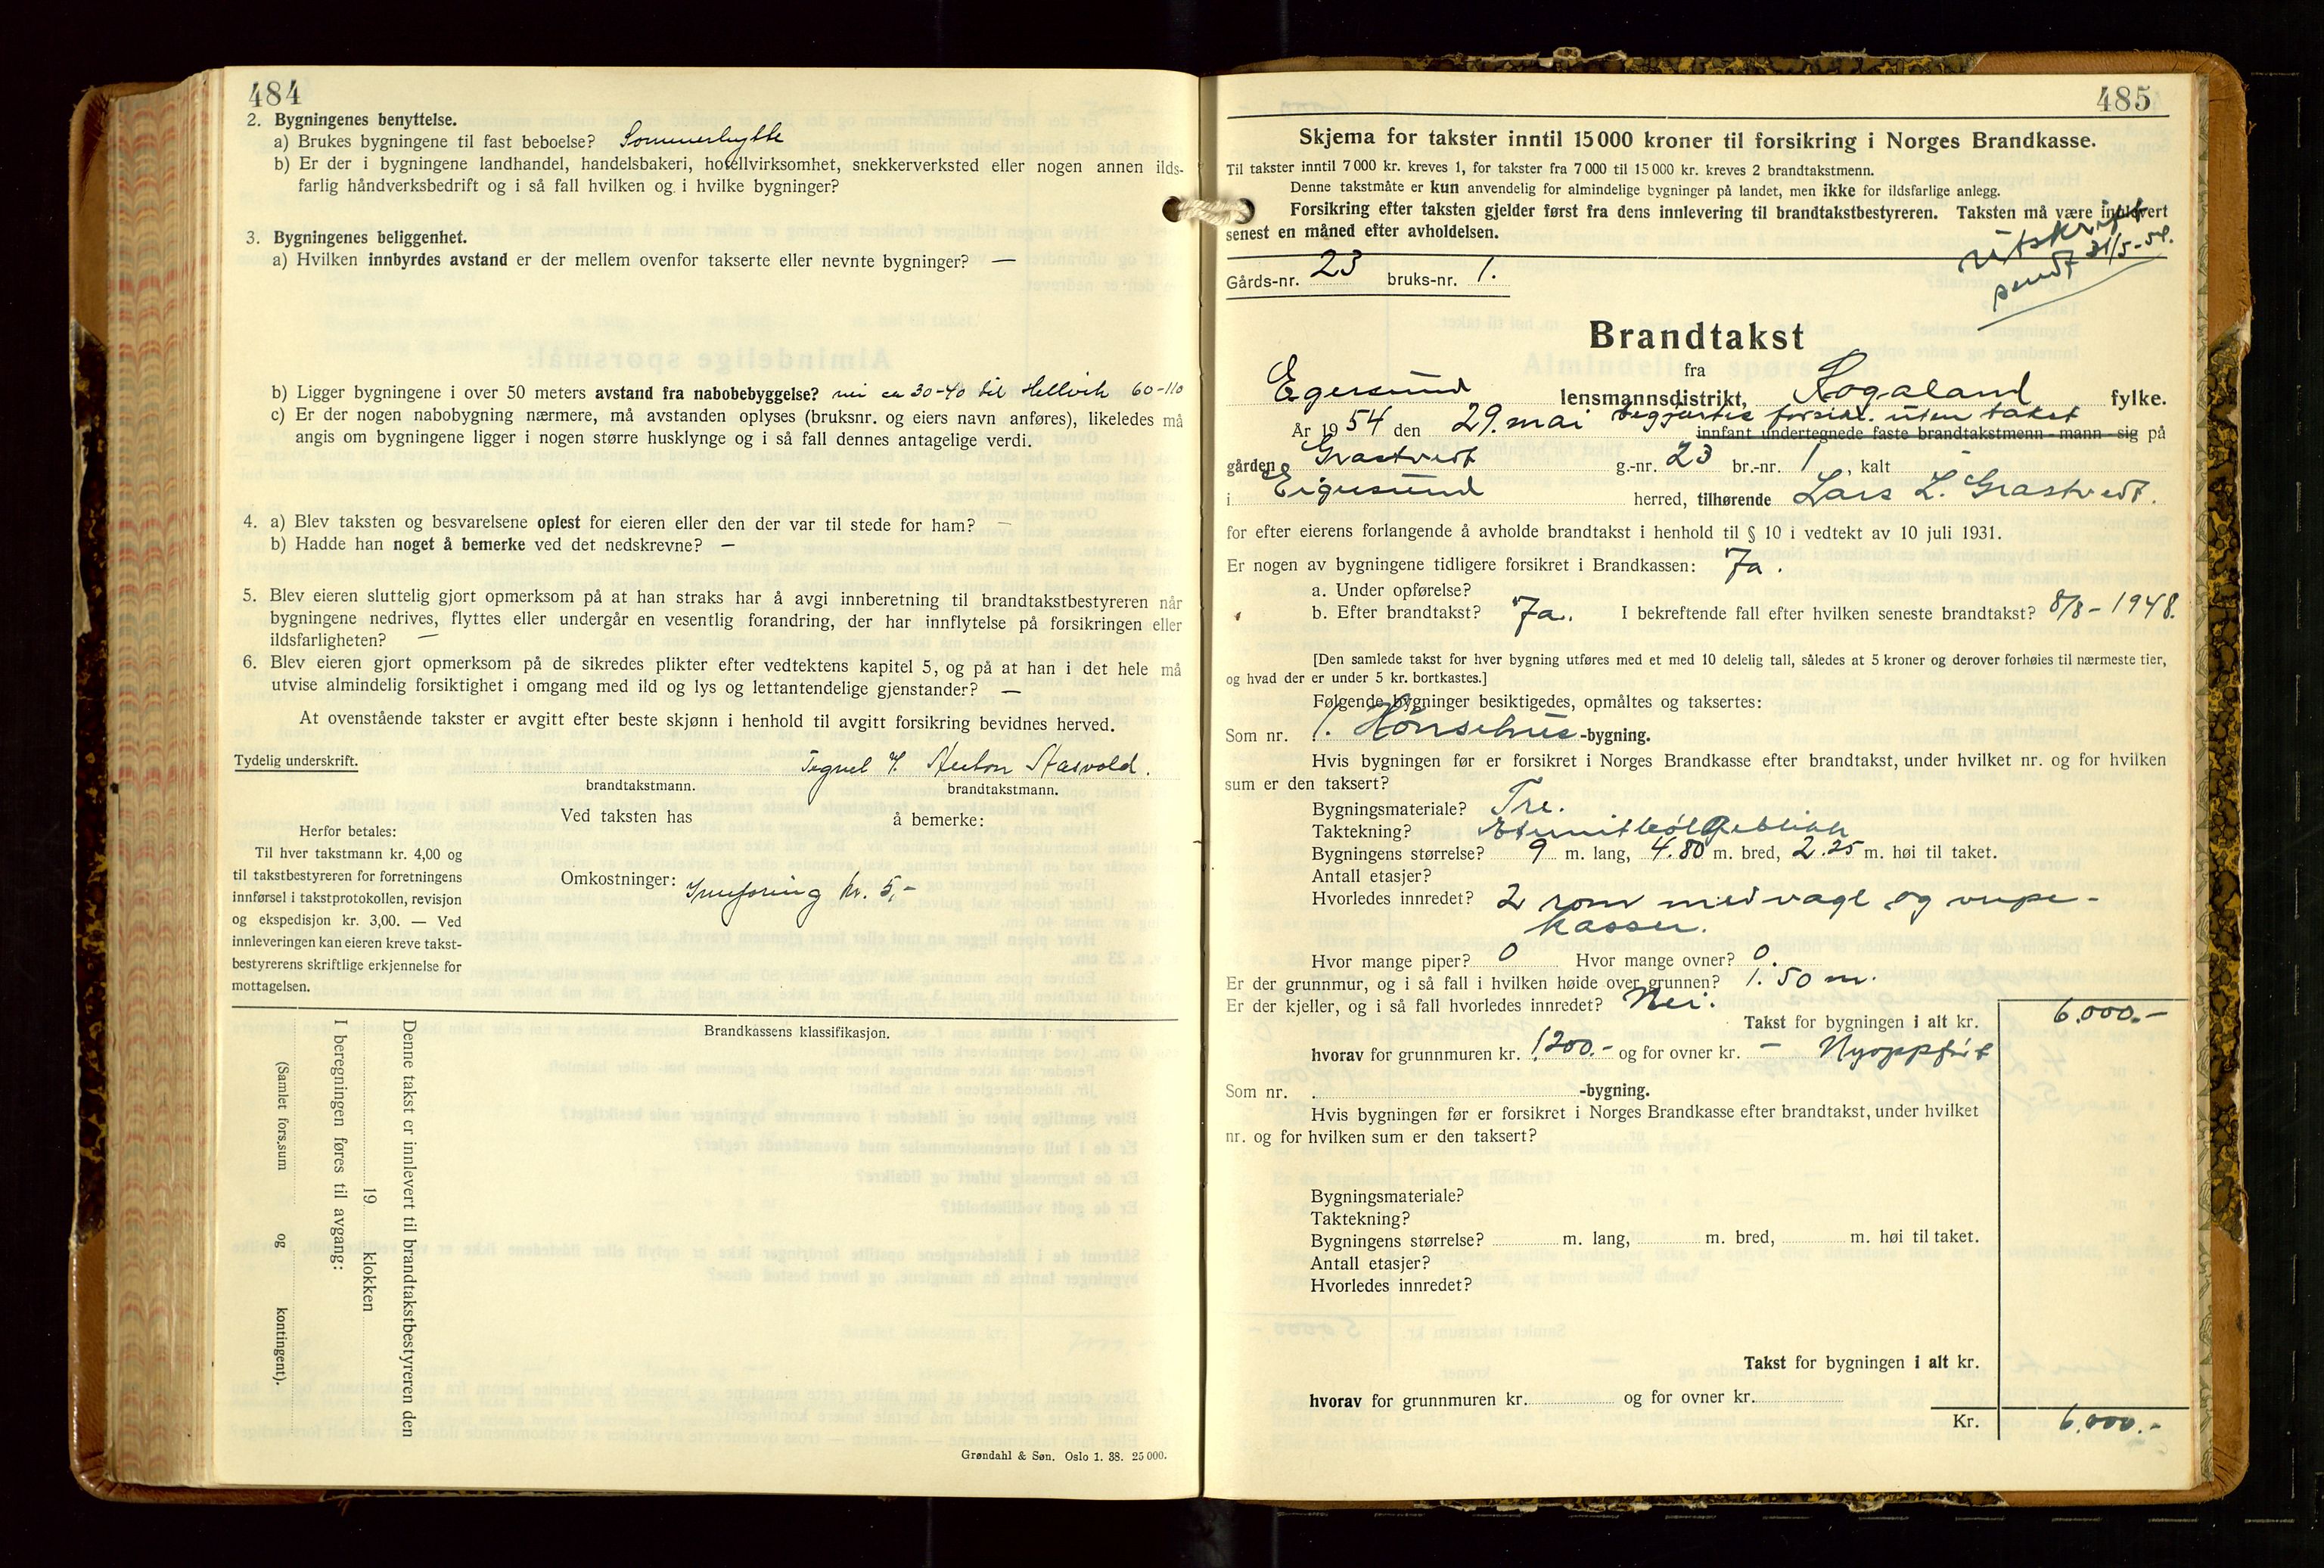 484
2. Bygningenes benyttelse.
a) Brukes bygningene til fast beboelse? Sommerhytte
b) Er der i bygningene landhandel, handelsbakeri, hotellvirksomhet, snekkerverksted eller nogen annen ilds-
farlig håndverksbedrift og i så fall hvilken og i hvilke bygninger?
3. Bygningenes beliggenhet.
a) Hvilken innbyrdes avstand er der mellem ovenfor takserte eller nevnte bygninger? —
b) Ligger bygningene i over 50 meters avstand fra nabobebyggelse? nei ca 30-40 til Hellvik 60-110
c) Er der nogen nabobygning nærmere, må avstanden oplyses (bruksnr. og eiers navn anføres), likeledes må
angis om bygningene ligger i nogen større husklynge og i så fall dennes antagelige verdi.
4. a) Blev taksten og besvarelsene oplest for eieren eller den der var til stede for ham? —
b) Hadde han noget å bemerke ved det nedskrevne? —
5. Blev eieren sluttelig gjort opmerksom på at han straks har å avgi innberetning til brandtakstbestyreren når
bygningene nedrives, flyttes eller undergår en vesentlig forandring, der har innflytelse på forsikringen eller
ildsfarligheten? —
6. Blev eieren gjort opmerksom på de sikredes plikter efter vedtektens kapitel 5, og på at han i det hele må
utvise almindelig forsiktighet i omgang med ild og lys og lettantendelige gjenstander? —
At ovenstående takster er avgitt efter beste skjønn i henhold til avgitt forsikring bevidnes herved.
Tydelig underskrift.
brandtakstmann. brandtakstmann.
Ved taksten has å bemerke:
Herfor betales:
Til hver takstmann kr. 4,00 og
til takstbestyreren for forretningens
innførsel i takstprotokollen, revisjon
og ekspedisjon kr. 3,00. — Ved
innleveringen kan eieren kreve takst-
bestyrerens skriftlige erkjennelse for
mottagelsen.
Omkostninger: kr. 5,-
Brandkassens klassifikasjon.
Denne takst er innlevert til brandtakstbestyreren den
19 klokken
I beregningen føres til avgang:
(Samlet fors.sum og kontingent).
Grøndahl & Søn. Oslo 1. 38. 25 000.
485
Skjema for takster inntil 15 000 kroner til forsikring i Norges Brandkasse.
Til takster inntil 7 000 kr. kreves 1, for takster fra 7 000 til 15 000 kr. kreves 2 brandtakstmenn.
Denne takstmåte er kun anvendelig for almindelige bygninger på landet, men ikke for ildsfarlige anlegg.
Forsikring efter taksten gjelder først fra dens innlevering til brandtakstbestyreren. Taksten må være innlevert
senest en måned efter avholdelsen.
utskrift
sendt 31/5-54.
Gårds-nr. 23 bruks-nr. 1.
Brandtakst
fra
Egersund lensmannsdistrikt, Rogaland fylke.
År 1954 den 29. mai begjærtes forsikr. uten takst
innfant undertegnede faste brandtakstmenn - mann - sig på
gården Grastvedt g.-nr. 23 br.-nr. 1, kalt
i Eigersund herred, tilhørende Lars L. Grastvedt.
for efter eierens forlangende å avholde brandtakst i henhold til § 10 i vedtekt av 10 juli 1931.
Er nogen av bygningene tidligere forsikret i Brandkassen: Ja.
a. Under opførelse?
b. Efter brandtakst? Ja. I bekreftende fall efter hvilken seneste brandtakst? 8/8-1948.
[Den samlede takst for hver bygning utføres med et med 10 delelig tall, således at 5 kroner og derover forhøies til nærmeste tier,
og hvad der er under 5 kr. bortkastes.]
Følgende bygninger besiktigedes, opmåltes og taksertes:
Som nr. 1. Hönsehus -bygning.
Hvis bygningen før er forsikret i Norges Brandkasse efter brandtakst, under hvilket nr. og for hvilken
sum er den taksert?
Bygningsmateriale? Tre.
Taktekning?
Bygningens størrelse? 9 m. lang, 4.80 m. bred, 2.25 m. høi til taket.
Antall etasjer?
Hvorledes innredet? 2 rom med vagl og verpe-
kasser.
Hvor mange piper? 0 Hvor mange ovner? 0.
Er der grunnmur, og i så fall i hvilken høide over grunnen? 1.50 m.
Er der kjeller, og i så fall hvorledes innredet? Nei.
Takst for bygningen i alt kr. 6.000.-
hvorav for grunnmuren kr. 1200.- og for ovner kr. — Nyoppført
Som nr. -bygning.
Hvis bygningen før er forsikret i Norges Brandkasse efter brandtakst, under hvilket
nr. og for hvilken sum er den taksert?
Bygningsmateriale?
Taktekning?
Bygningens størrelse? m. lang, m. bred, m. høi til taket.
Antall etasjer?
Hvorledes innredet?
Takst for bygningen i alt kr.
hvorav for grunnmuren kr. og for ovner kr.
Kr. 6.000.-